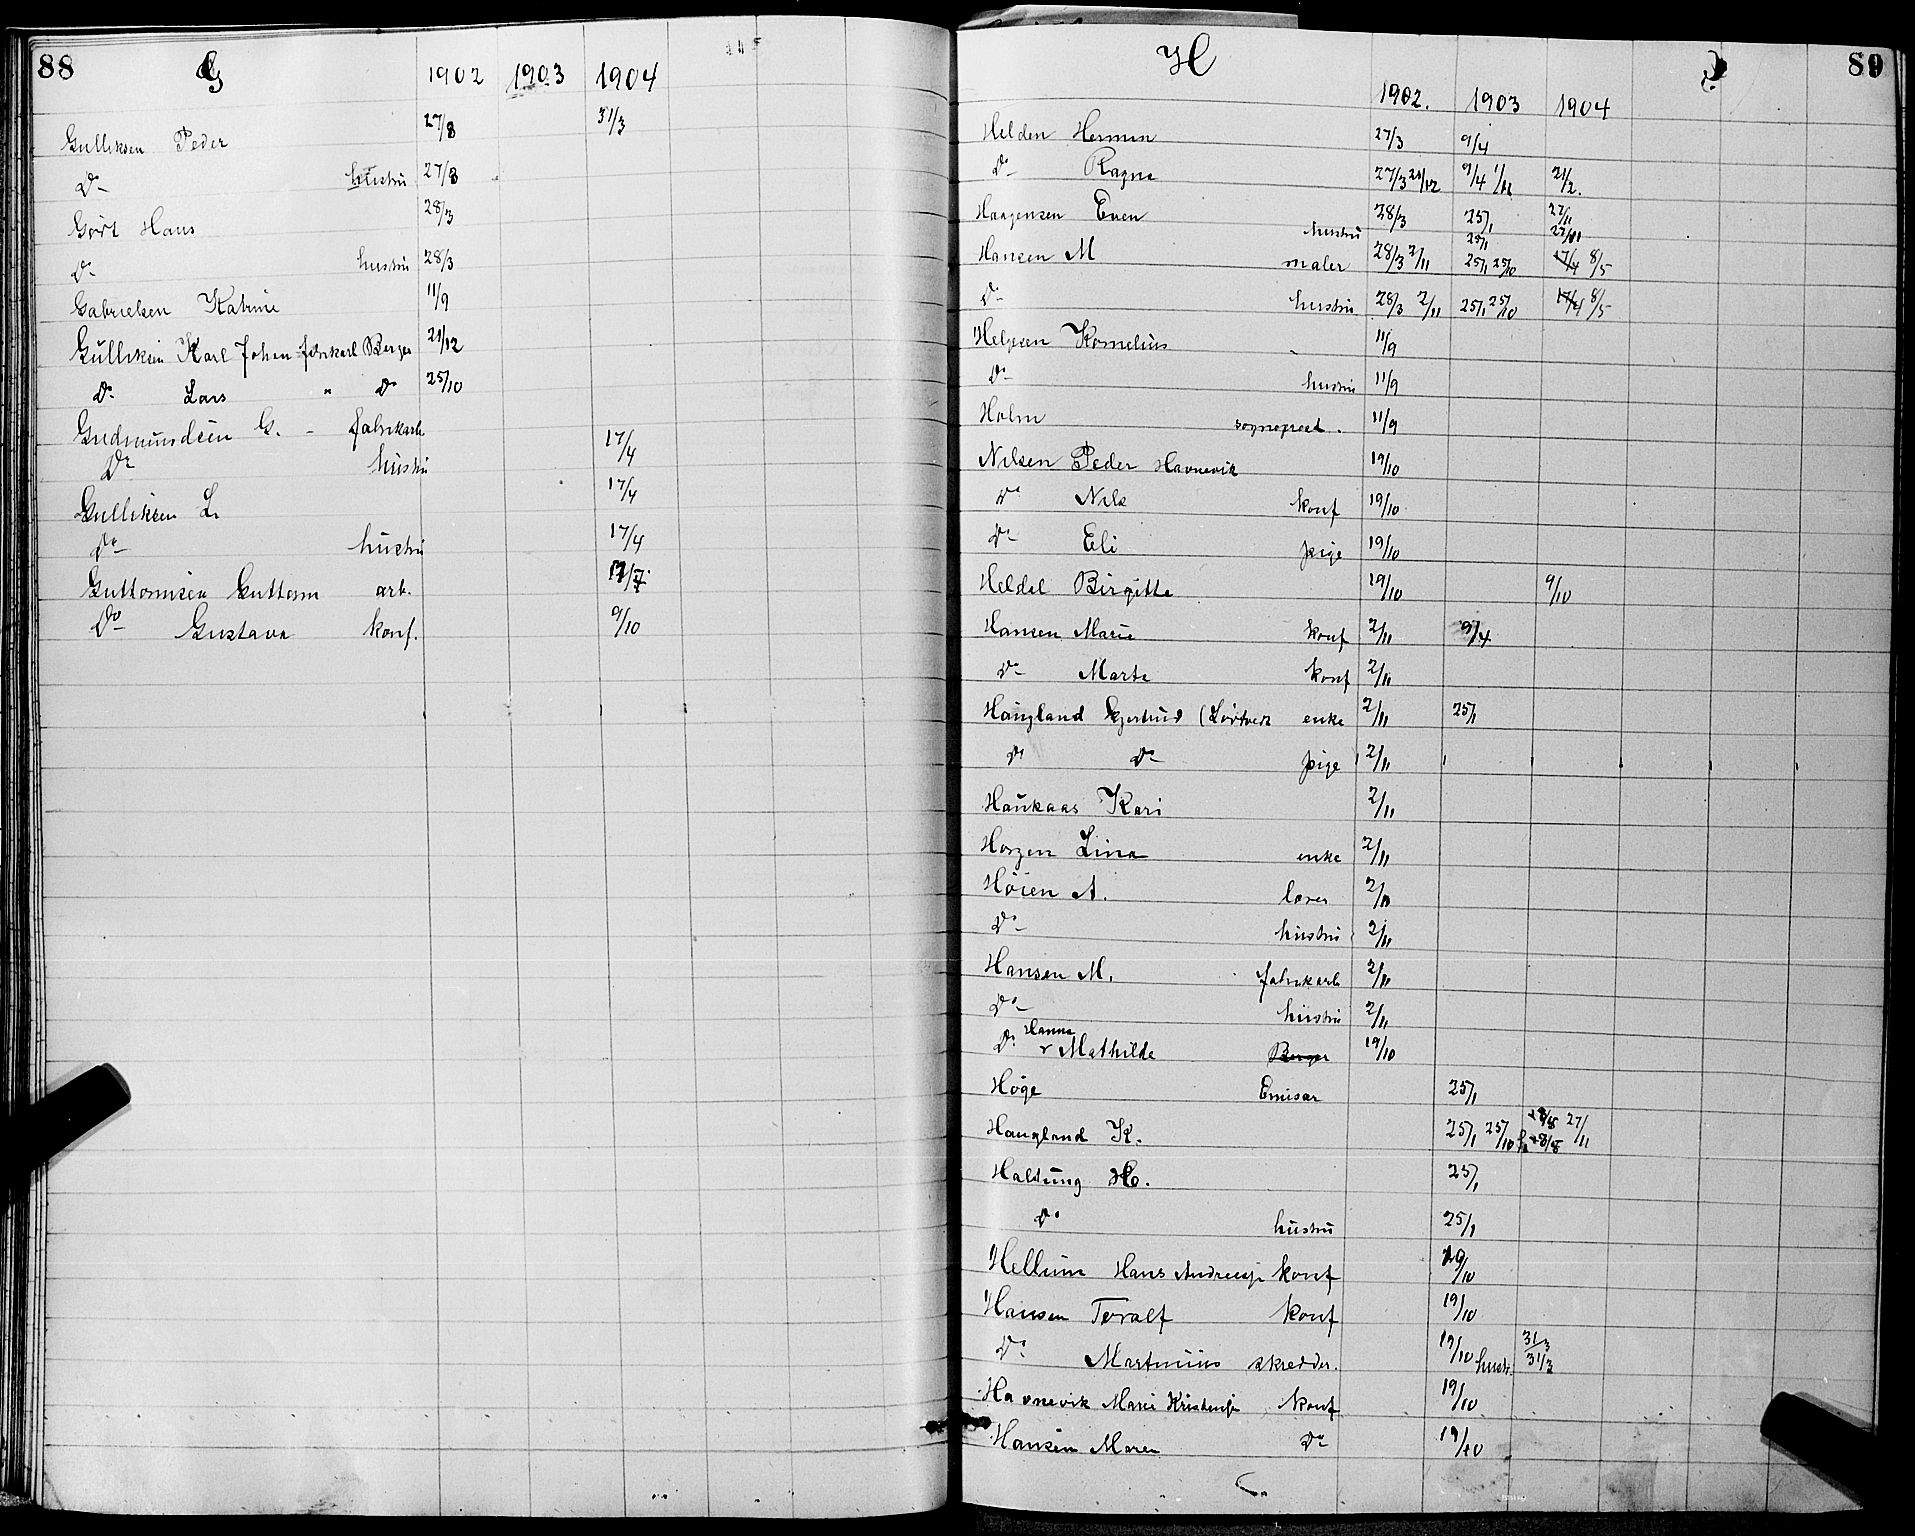 88 G 1902 1903 1904
Gulliksen Peder 27/3 31/3
Do hustru 27/3
Gört Hans 28/3
Do hustru 28/3
Gabrielsen Katrine 11/9
Gulliksen Karl Johan fabrikarb Berger 21/12
Do Lars " Do 25/10
Gudmundsen G. - fabrikarb 17/4
Do hustru 17/4
Gulliksen L. 17/4
Do hustru
Guttormsen Guttorm arb.
Do Gustava konf. 9/10
H 89
1902. 1903 1904
Helden Herman 27/3 9/4
Do Ragna 27/3 21/12 9/4 1/11 21/2.
Haagensen Even 28/3 25/1 27/11
hustru 25/1 27/11
Hansen M maler 28/3 2/11 25/1 25/10 17/4 8/5
Do hustru 28/3 2/11 25/1 25/10 17/4 8/5
Helgesen Kornelius 11/9
Do hustru 11/9
Holm sogneprest. 11/9
Nilsen Peder Havnevik 19/10
Do Nils konf 19/10
Do Eli pige 19/10
Heldal Birgitte 19/10 9/10
Hansen Marie konf 2/11 9/4
Do Marta konf 2/11
Haugland Gjertrud (Lörtveit enke 2/11 25/1
Do Do pige 2/11
Haukaas Kari 2/11
Horgen Lina enke 2/11
Höien A. lærer 2/11
Do hustru 2/11
Hansen M. fabrikarb 2/11
Do hustru 2/11
Hanna
Do v Mathilde Berger 19/10
Höge Emisær 25/1
Haugland K. 25/1 25/10 28/8 27/11
h 28/8
Haldung H. 25/1
Do hustru 25/1
Hellum Hans Andreas konf 19/10
Hansen Toralf konf 19/10
Do Martinius skrædder. 19/10 31/3
hustr. 31/3
Havnevik Marie Kristense konf 19/10
Hansen Maren Do 19/10